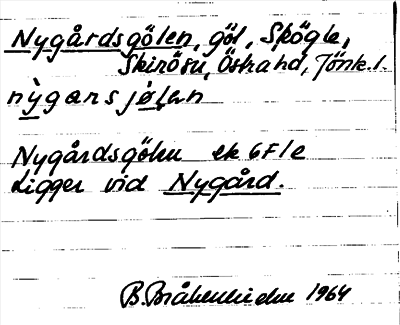 Nygårdsgölen, göl, Skögle,
Skirösn, Östra hd, Jönk. l.
nỳgansjølen
Nygårdsgölen ek 6F1e
Ligger vid Nygård.
B. 1964